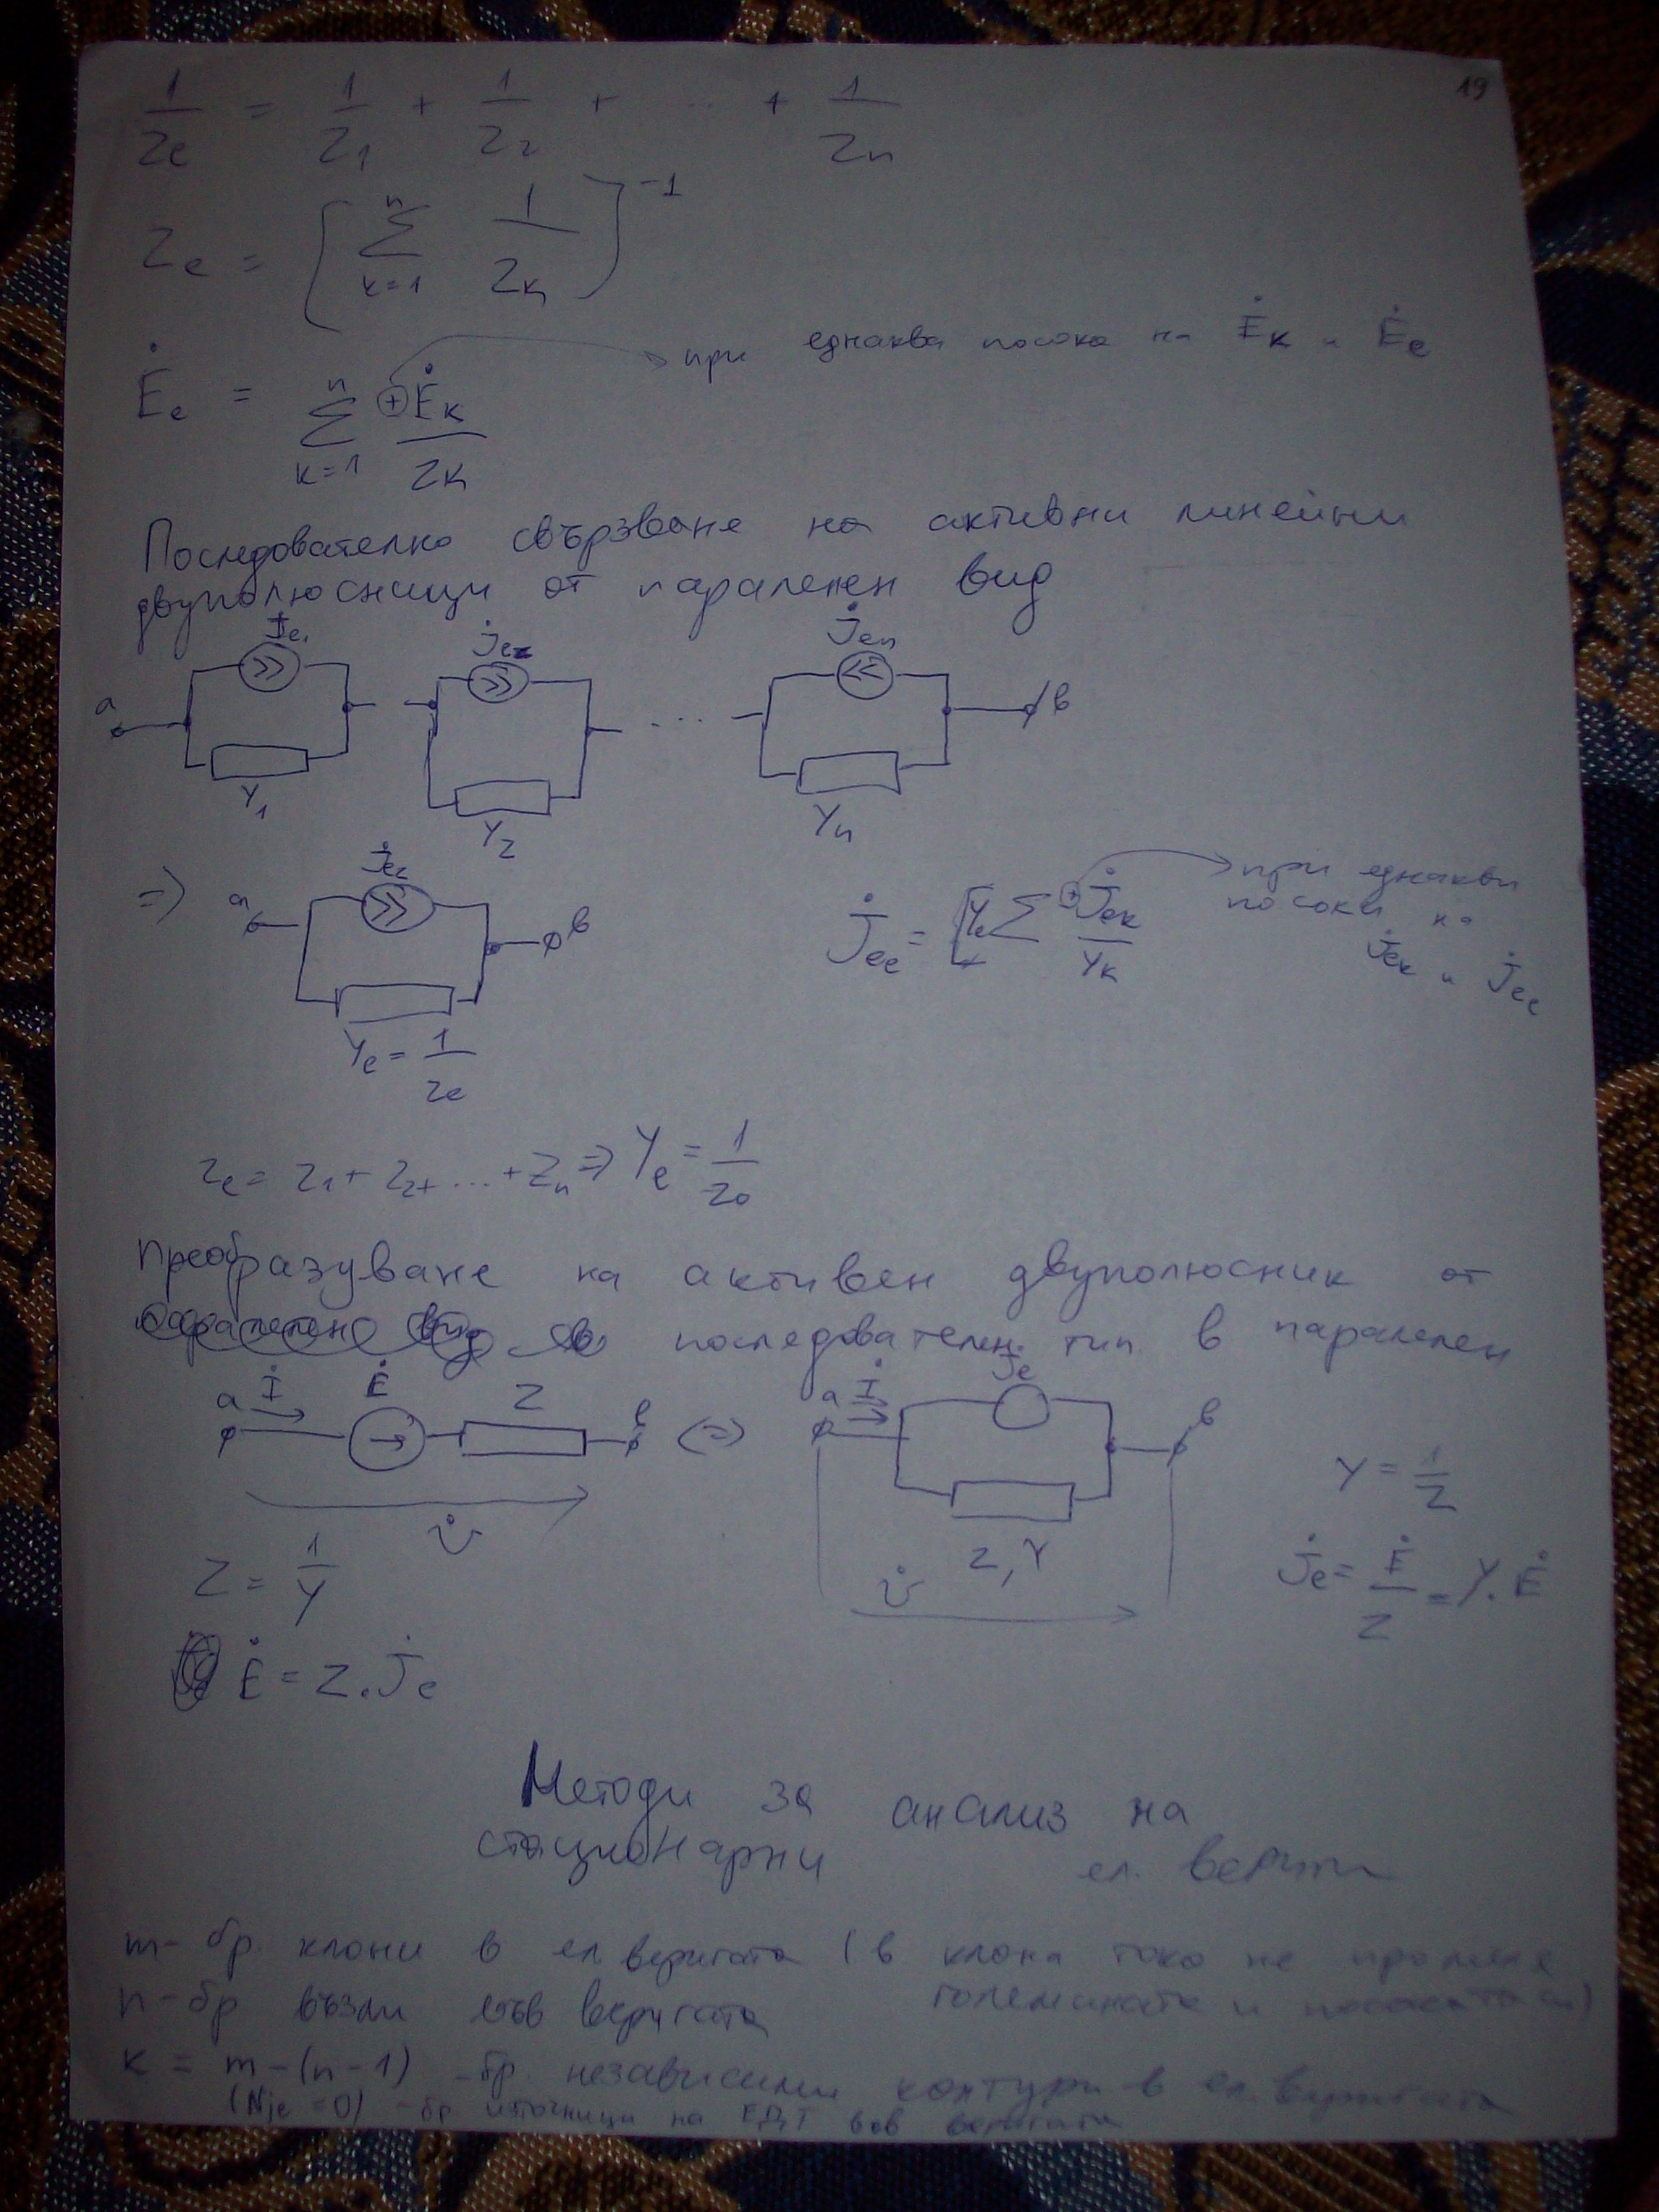 19
1/Ze = 1/Z1 + 1/Z2 + ... + 1/Zn
Ze = [ n Σ k=1 1/Zk ]^-1
Ėe = n Σ k=1 ⊕Ėk/Zk → при еднаква посока на Ėk и Ėe
Последователно свързване на активни линейни
двуполюсници от паралелен вид
J̇e1 J̇e2 J̇en
a ... в
Y1 Y2 Yn
=> a J̇ee в
J̇ee = Ye Σ ⊕J̇ek/Yk → при еднакви
посоки на
J̇ek и J̇ee
Ye = 1/Ze
Ze = Z1 + Z2 + ... + Zn => Ye = 1/Ze
Преобразуване на активен двуполюсник от
последователен тип в паралелен
a İ Ė Z в <=> a İ J̇e в
U̇
Z, Y
U̇
Y = 1/Z
Z = 1/Y
J̇e = Ė/Z = Y.Ė
Ė = Z.J̇e
Методи за анализ на
стационарни ел. вериги
m - бр. клони в ел веригата (в клона тока не променя
големината и посоката си)
n - бр възли във веригата
k = m-(n-1) - бр. независими контури в ел. веригата
(Nje = 0) - бр източници на ЕДТ във веригата